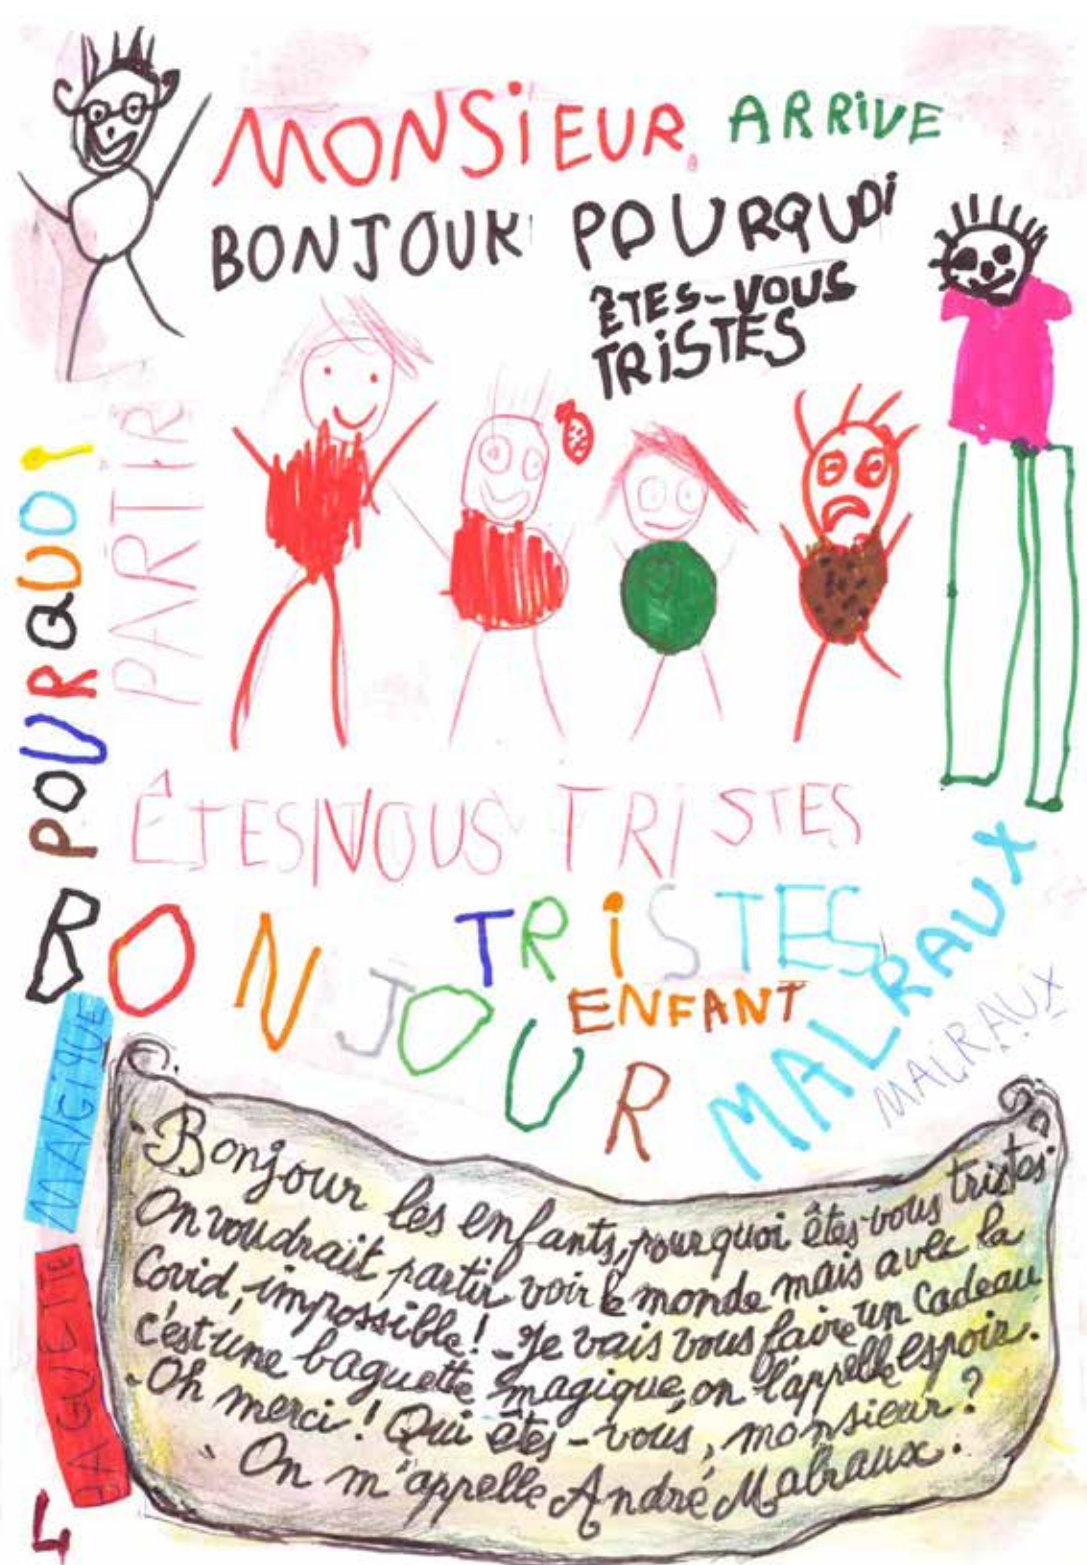 MONSiEUR ARRiVE
BONJOUR POURQUOi
ÊTES-VOUS
TRiSTES
POURQUOI
PARTIR
ÊTES VOUS TRISTES
BONJOUR
TRiSTES
ENFANT
MALRAUX
MALRAUX
MAGiQUE
BAGUETTE
- Bonjour les enfants, pourquoi êtes-vous tristes?
On voudrait partir voir le monde mais avec la
Covid, impossible! - Je vais vous faire un cadeau
c'est une baguette magique, on l'appelle espoir.
- Oh merci! Qui êtes-vous, monsieur?
- On m'appelle André Malraux.
4